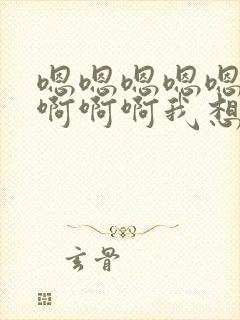 嗯嗯嗯嗯嗯
啊啊啊我想
玄骨